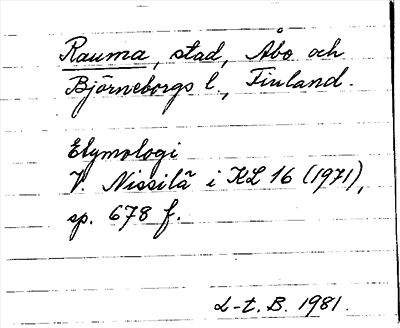 Rauma, stad, Åbo och
Björneborgs l., Finland.
Etymologi
V. Nissilä i KL 16 (1971),
sp. 678 f.
L-t. B. 1981.